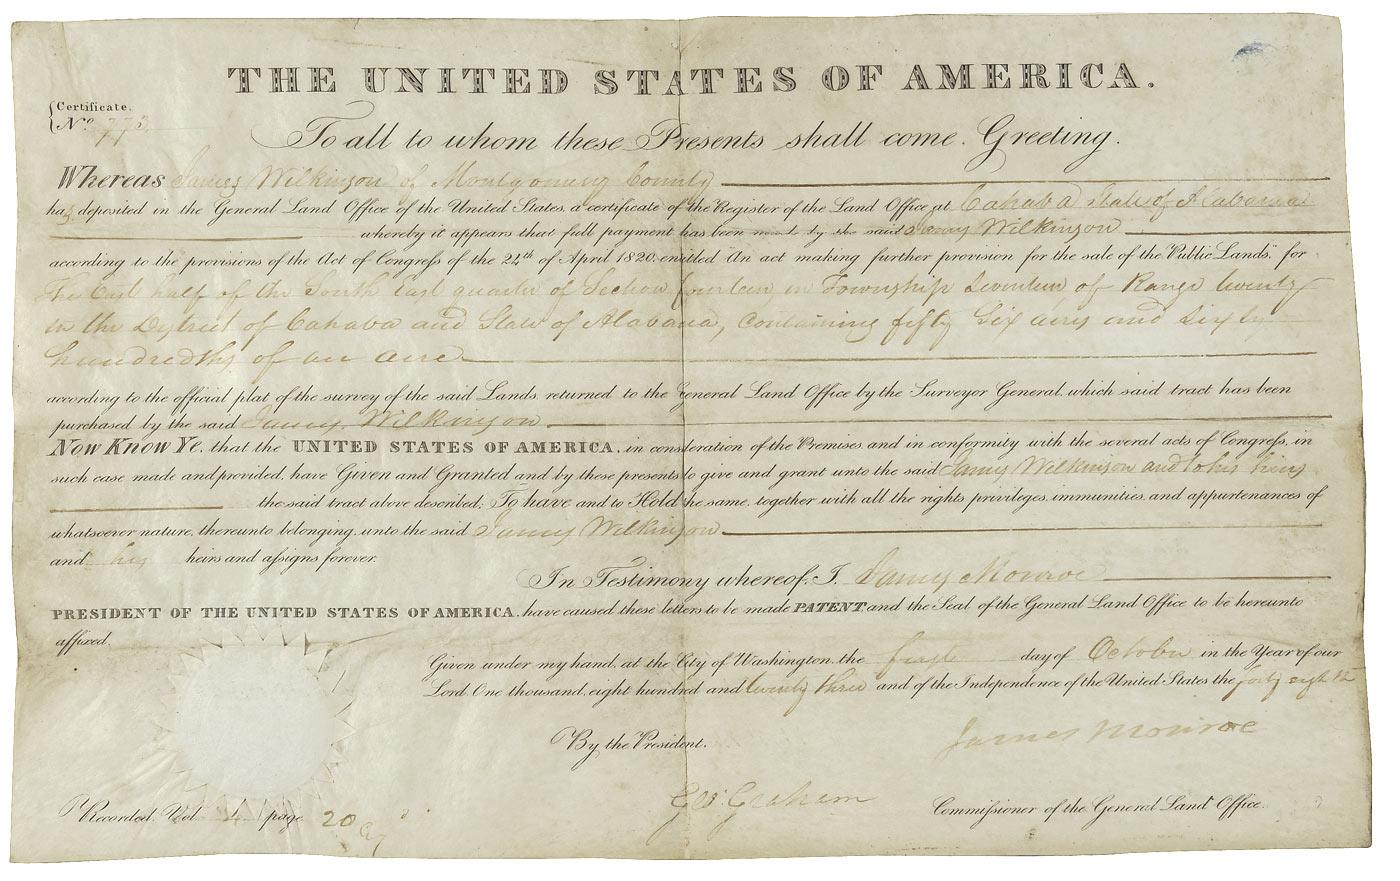 THE UNITED STATES OF AMERICA.
Certificate.
No. 773
To all to whom these Presents shall come. Greeting.
Whereas James Wilkinson of Montgomery County
has deposited in the General Land Office of the United States, a certificate of the Register of the Land Office at Cahaba State of Alabama
whereby it appears that full payment has been made by the said James Wilkinson
according to the provisions of the Act of Congress of the 24th of April 1820, entitled An act making further provision for the sale of the Public Lands, for
The East half of the South East quarter of Section fourteen, in Township Seventeen of Range twenty
in the District of Cahaba and State of Alabama, Containing fifty Six acres and Sixty
hundredths of an acre
according to the official plat of the survey of the said Lands returned to the General Land Office by the Surveyor General, which said tract has been
purchased by the said James Wilkinson
Now Know Ye, that the UNITED STATES OF AMERICA, in consideration of the Premises, and in conformity with the several acts of Congress, in
such case made and provided, have Given and Granted and by these presents to give and grant unto the said James Wilkinson and to his heirs
the said tract above described; To have and to Hold the same, together with all the rights privileges, immunities, and appurtenances of
whatsoever nature, thereunto belonging, unto the said James Wilkinson
and his heirs and assigns forever.
In Testimony whereof, I, James Monroe
PRESIDENT OF THE UNITED STATES OF AMERICA, have caused these letters to be made PATENT and the Seal of the General Land Office to be hereunto
affixed.
Given under my hand, at the City of Washington, the first day of October in the Year of our
Lord One thousand, eight hundred and twenty three and of the Independence of the United States the forty eighth
By the President.
James Monroe
Geo: Graham Commissioner of the General Land Office.
Recorded, Vol. 4 page 20